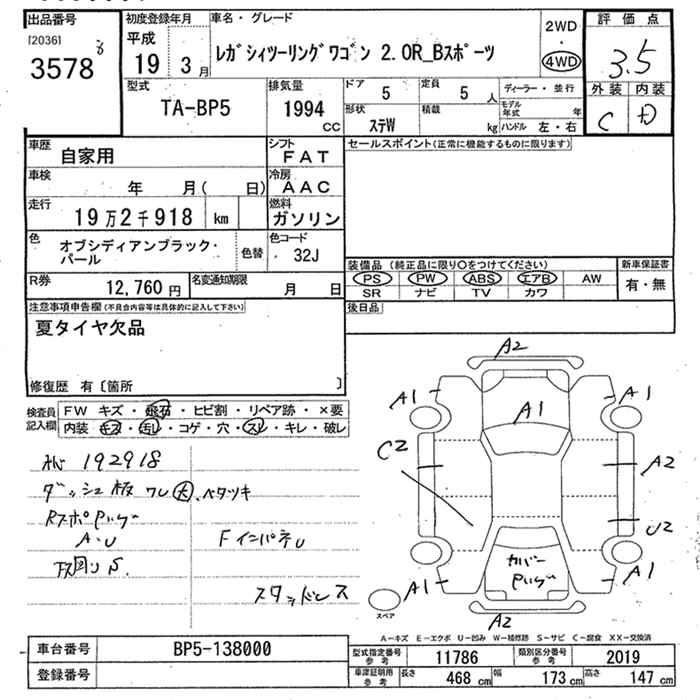 出品番号
[2036]
3578
初度登録年月
平成
19 3月
車名・グレード
レガシィツーリングワゴン 2.0R_Bスポーツ
2WD
・
4WD
評価点
3.5
外装 内装
C D
型式
TA-BP5
排気量
1994
CC
ドア
5
定員
5 人
形状
ステW
積載
kg
ディーラー・並行
モデル年式 年
ハンドル 左・右
車歴
自家用
シフト
FAT
車検
年 月( 日)
冷房
AAC
走行
19万2千918 km
燃料
ガソリン
色
オブシディアンブラック・
パール
色替
色コード
32J
R券
12,760 円
名変通知期限
月 日
セールスポイント(正常に機能するものに限ります)
装備品 (純正品に限り○をつけてください)
PS PW ABS エアB AW
SR ナビ TV カワ
新車保証書
有・無
後日品
注意事項申告欄(不具合内容等は具体的に記入して下さい)
夏タイヤ欠品
修復歴 有〔箇所 〕
検査員
記入欄
FW キズ・飛石・ヒビ割・リペア跡・×要
内装 キズ・汚レ・コゲ・穴・スレ・キレ・破レ
192918
ダッシュ板 ワレ 大、ベタツキ
A・U
FインパネU
下回りS.
スタッドレス
A2
A1
A1
A1
C2
A2
U2
カバー
A1
A1
スペア
A2
A-キズ E-エクボ U-凹み W-補修跡 S-サビ C-腐食 XX-交換済
車台番号
BP5-138000
登録番号
型式指定番号
参考
11786
類別区分番号
参考
2019
車庫証明用
参考
長さ
468 cm
幅
173 cm
高さ
147 cm